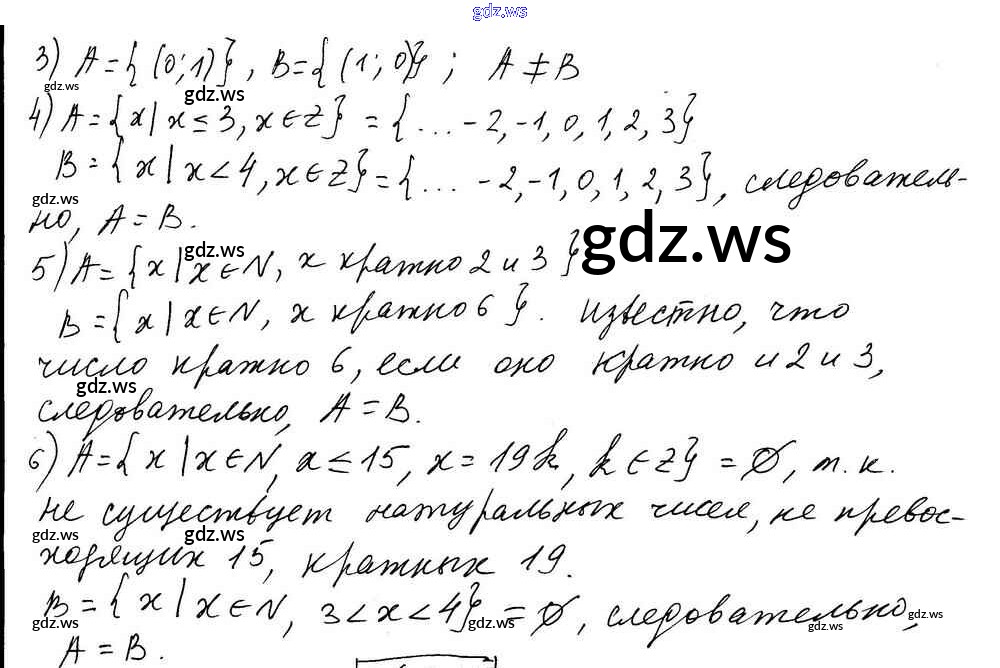 gdz.ws
3) A={(0;1)}, B={(1;0)}; A≠B
gdz.ws gdz.ws
4) A={x|x≤3, x∈Z} = {...-2,-1,0,1,2,3}
B={x|x<4, x∈Z}={...-2,-1,0,1,2,3}, следователь-
gdz.ws
но, A=B.
gdz.ws gdz.ws
5) A={x|x∈N, x кратно 2 и 3}
B={x|x∈N, x кратно 6}. Известно, что
число кратно 6, если оно кратно и 2 и 3,
gdz.ws
следовательно, A=B.
6) A={x|x∈N, x≤15, x=19k, k∈Z}=∅, т.к.
не существует натуральных чисел, не превос-
gdz.ws gdz.ws
ходящих 15, кратных 19.
B={x|x∈N, 3<x<4}=∅, следовательно,
gdz.ws gdz.ws gdz.ws gdz.ws gdz.ws
A=B.